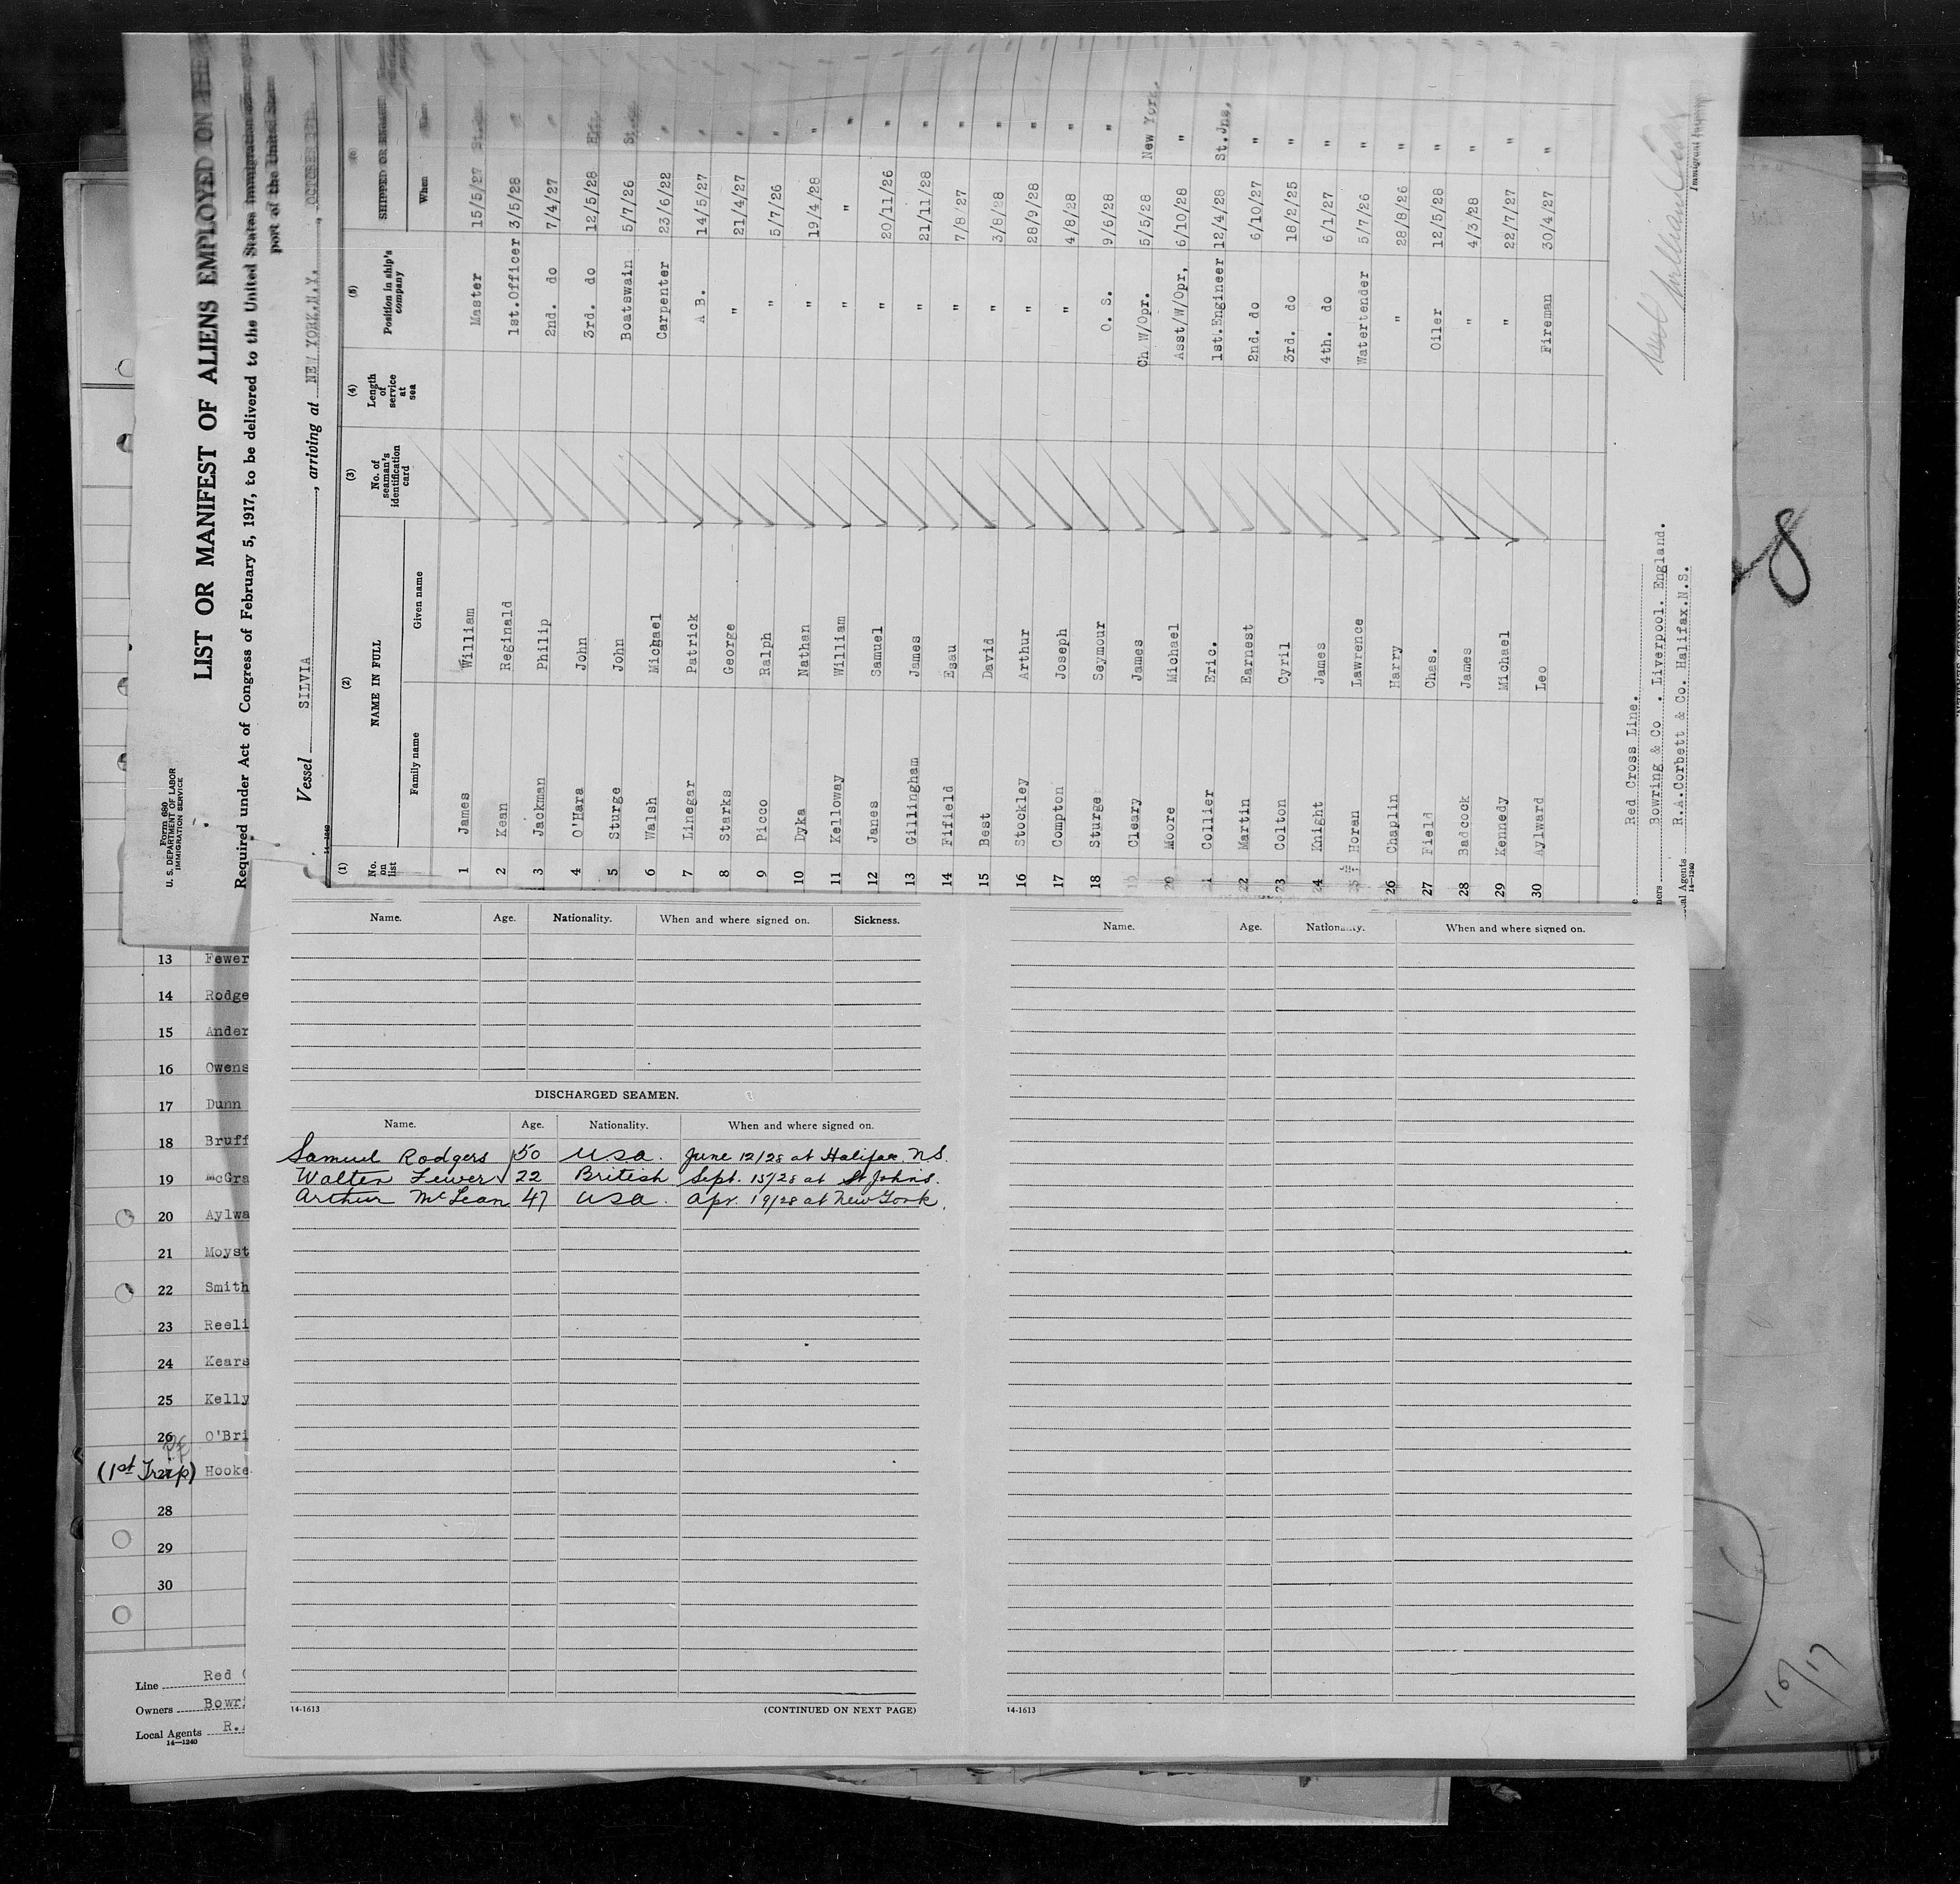 Form 680
U. S. DEPARTMENT OF LABOR
IMMIGRATION SERVICE
LIST OR MANIFEST OF ALIENS EMPLOYED ON THE
Required under Act of Congress of February 5, 1917, to be delivered to the United States Immigration
port of the United States
Vessel SILVIA, arriving at NEW YORK.N.Y., OCTOBER
14-1240
(1) (2) (3) (4) (5)
No. on list NAME IN FULL No. of seaman's identification card Length of service at sea Position in ship's company SHIPPED OR
Family name Given name When
1 James William Master 15/5/27
2 Kean Reginald 1st.Officer 3/5/28 "
3 Jackman Philip 2nd. do 7/4/27 "
4 O'Hara John 3rd. do 12/5/28
5 Sturge John Boatswain 5/7/26
6 Walsh Michael Carpenter 23/6/22 "
7 Linegar Patrick A B. 14/5/27 "
8 Starks George " 21/4/27 "
9 Picco Ralph " 5/7/26 "
10 Dyka Nathan " 19/4/28 "
11 Kelloway William " " "
12 Janes Samuel " 20/11/26 "
13 Gillingham James " 21/11/28 "
14 Fifield Esau " 7/8/27 "
15 Best David " 3/8/28 "
16 Stockley Arthur " 28/9/28 "
17 Compton Joseph " 4/8/28 "
18 Sturge Seymour O. S. 9/6/28 "
19 Cleary James Ch W/Opr. 5/5/28 New York.
20 Moore Michael Asst/W/Opr, 6/10/28 "
21 Collier Eric. 1st.Engineer 12/4/28 St.Jns.
22 Martin Earnest 2nd. do 6/10/27 "
23 Colton Cyril 3rd. do 18/2/25 "
24 Knight James 4th. do 6/1/27 "
25 Horan Lawrence Watertender 5/7/26 "
26 Chaplin Harry " 28/8/26 "
27 Field Chas. Oiler 12/5/28 "
28 Badcock James " 4/3/28 "
29 Kennedy Michael " 22/7/27 "
30 Aylward Leo Fireman 30/4/27 "
Red Cross Line.
Bowring & Co . Liverpool. England.
R.A.Corbett & Co. Halifax.N.S.
14-1240
Name. Age. Nationality. When and where signed on. Sickness.
DISCHARGED SEAMEN.
Name. Age. Nationality. When and where signed on.
Samuel Rodgers 50 USA. June 12/28 at Halifax. NS.
Walter Fewer 22 British Sept. 15/28 at St Johns.
Arthur McLean 47 USA. Apr. 19/28 at New York.
14-1613 (CONTINUED ON NEXT PAGE)
Name. Age. Nationality. When and where signed on.
14-1613
13 Fewer
14 Rodge
15 Ander
16 Owens
17 Dunn
18 Bruff
19 McGra
20 Aylwa
21 Moyst
22 Smith
23 Reeli
24 Kears
25 Kelly
26 O'Bri
(1st Trip) Hooke
28
29
30
Line Red
Owners Bowr
Local Agents R.
14-1240
8
10/17